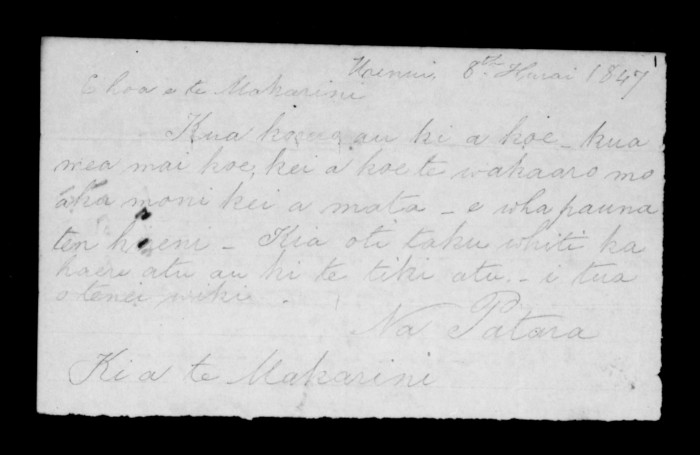 1
8th Hurai 1847
E hoa e te Makarini
Kua au ki a koe - kua
mea mai koe, kei a koe te wakaaro mo
aku moni kei a mata - e wha pauna
ten heeni - Kia oti taku whiti ka
haere atu au ki te tiki atu - i tua
o tenei wiki -
Na Patara
Ki a te Makarini